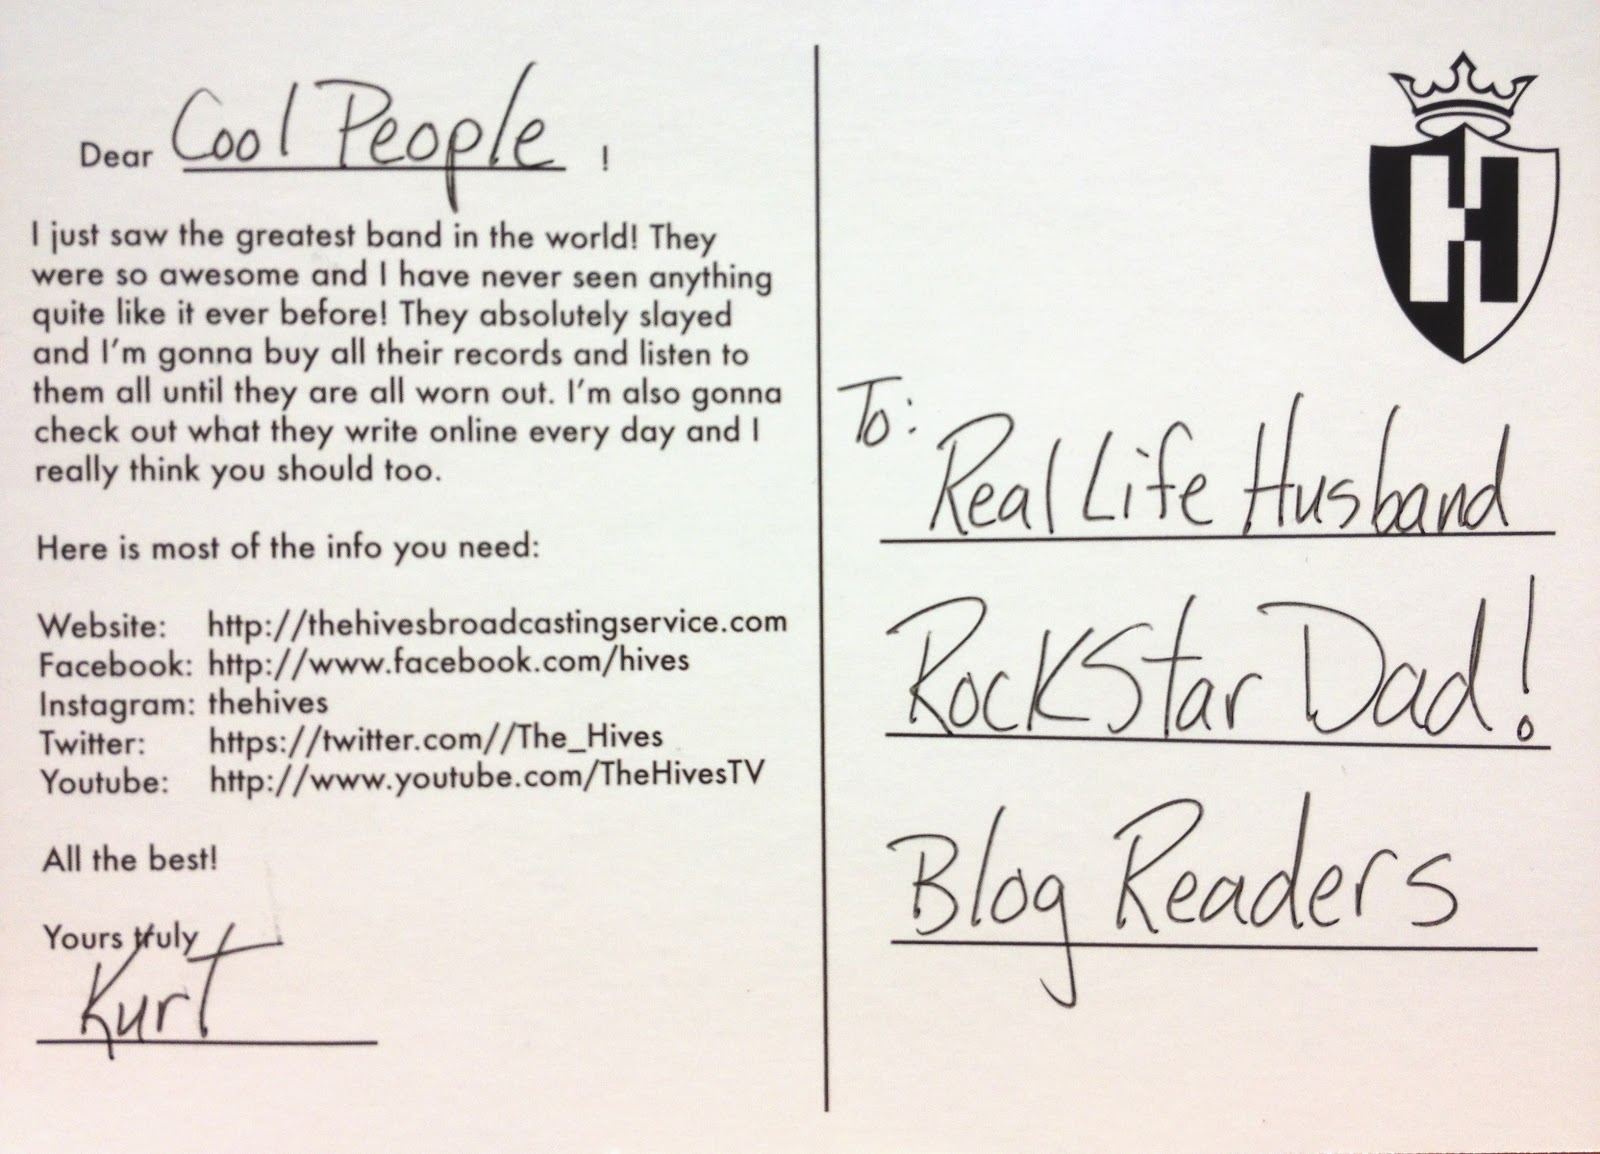 Dear Cool People !
I just saw the greatest band in the world! They
were so awesome and I have never seen anything
quite like it ever before! They absolutely slayed
and I'm gonna buy all their records and listen to
them all until they are all worn out. I'm also gonna
check out what they write online every day and I
really think you should too.
Here is most of the info you need:
Website: http://thehivesbroadcastingservice.com
Facebook: http://www.facebook.com/hives
Instagram: thehives
Twitter: https://twitter.com//The_Hives
Youtube: http://www.youtube.com/TheHivesTV
All the best!
Yours truly
Kurt
H
To:
Real Life Husband
RockStar Dad!
Blog Readers